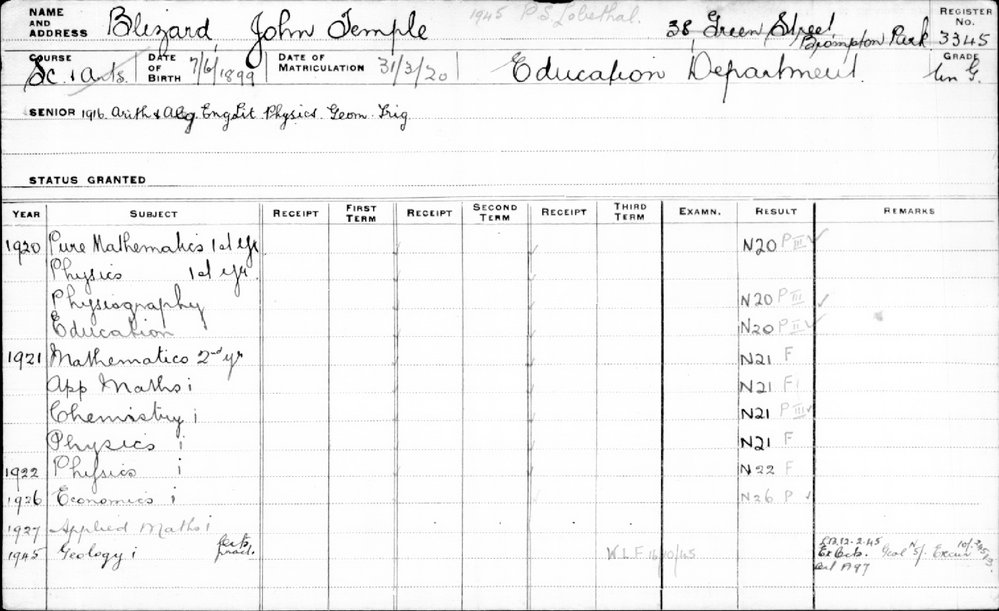 NAME AND ADDRESS Blizard, John Temple 1945 P.S. Lobethal. 38 Green Street Brompton Park REGISTER No. 3345
COURSE Sc. & Arts. DATE OF BIRTH 7/6/1899 DATE OF MATRICULATION 31/3/20 Education Department. GRADE Un G.
SENIOR 1916. Arith & Alg. Eng Lit Physics. Geom. Trig
STATUS GRANTED
YEAR SUBJECT RECEIPT FIRST TERM RECEIPT SECOND TERM RECEIPT THIRD TERM EXAMN. RESULT REMARKS
1920 Pure Mathematics 1st yr N20 P III ✓
Physics 1st yr.
Physiography N20 P III ✓
Education N20 P II ✓
1921 Mathematics 2nd yr N21 F
App Maths i N21 F
Chemistry i N21 P III ✓
Physics i N21 F
1922 Physics i N22 F
1926 Economics i N26 P ✓
1927 Applied Maths i
1945 Geology i pract. W.L.F 16/10/45 12.2.45